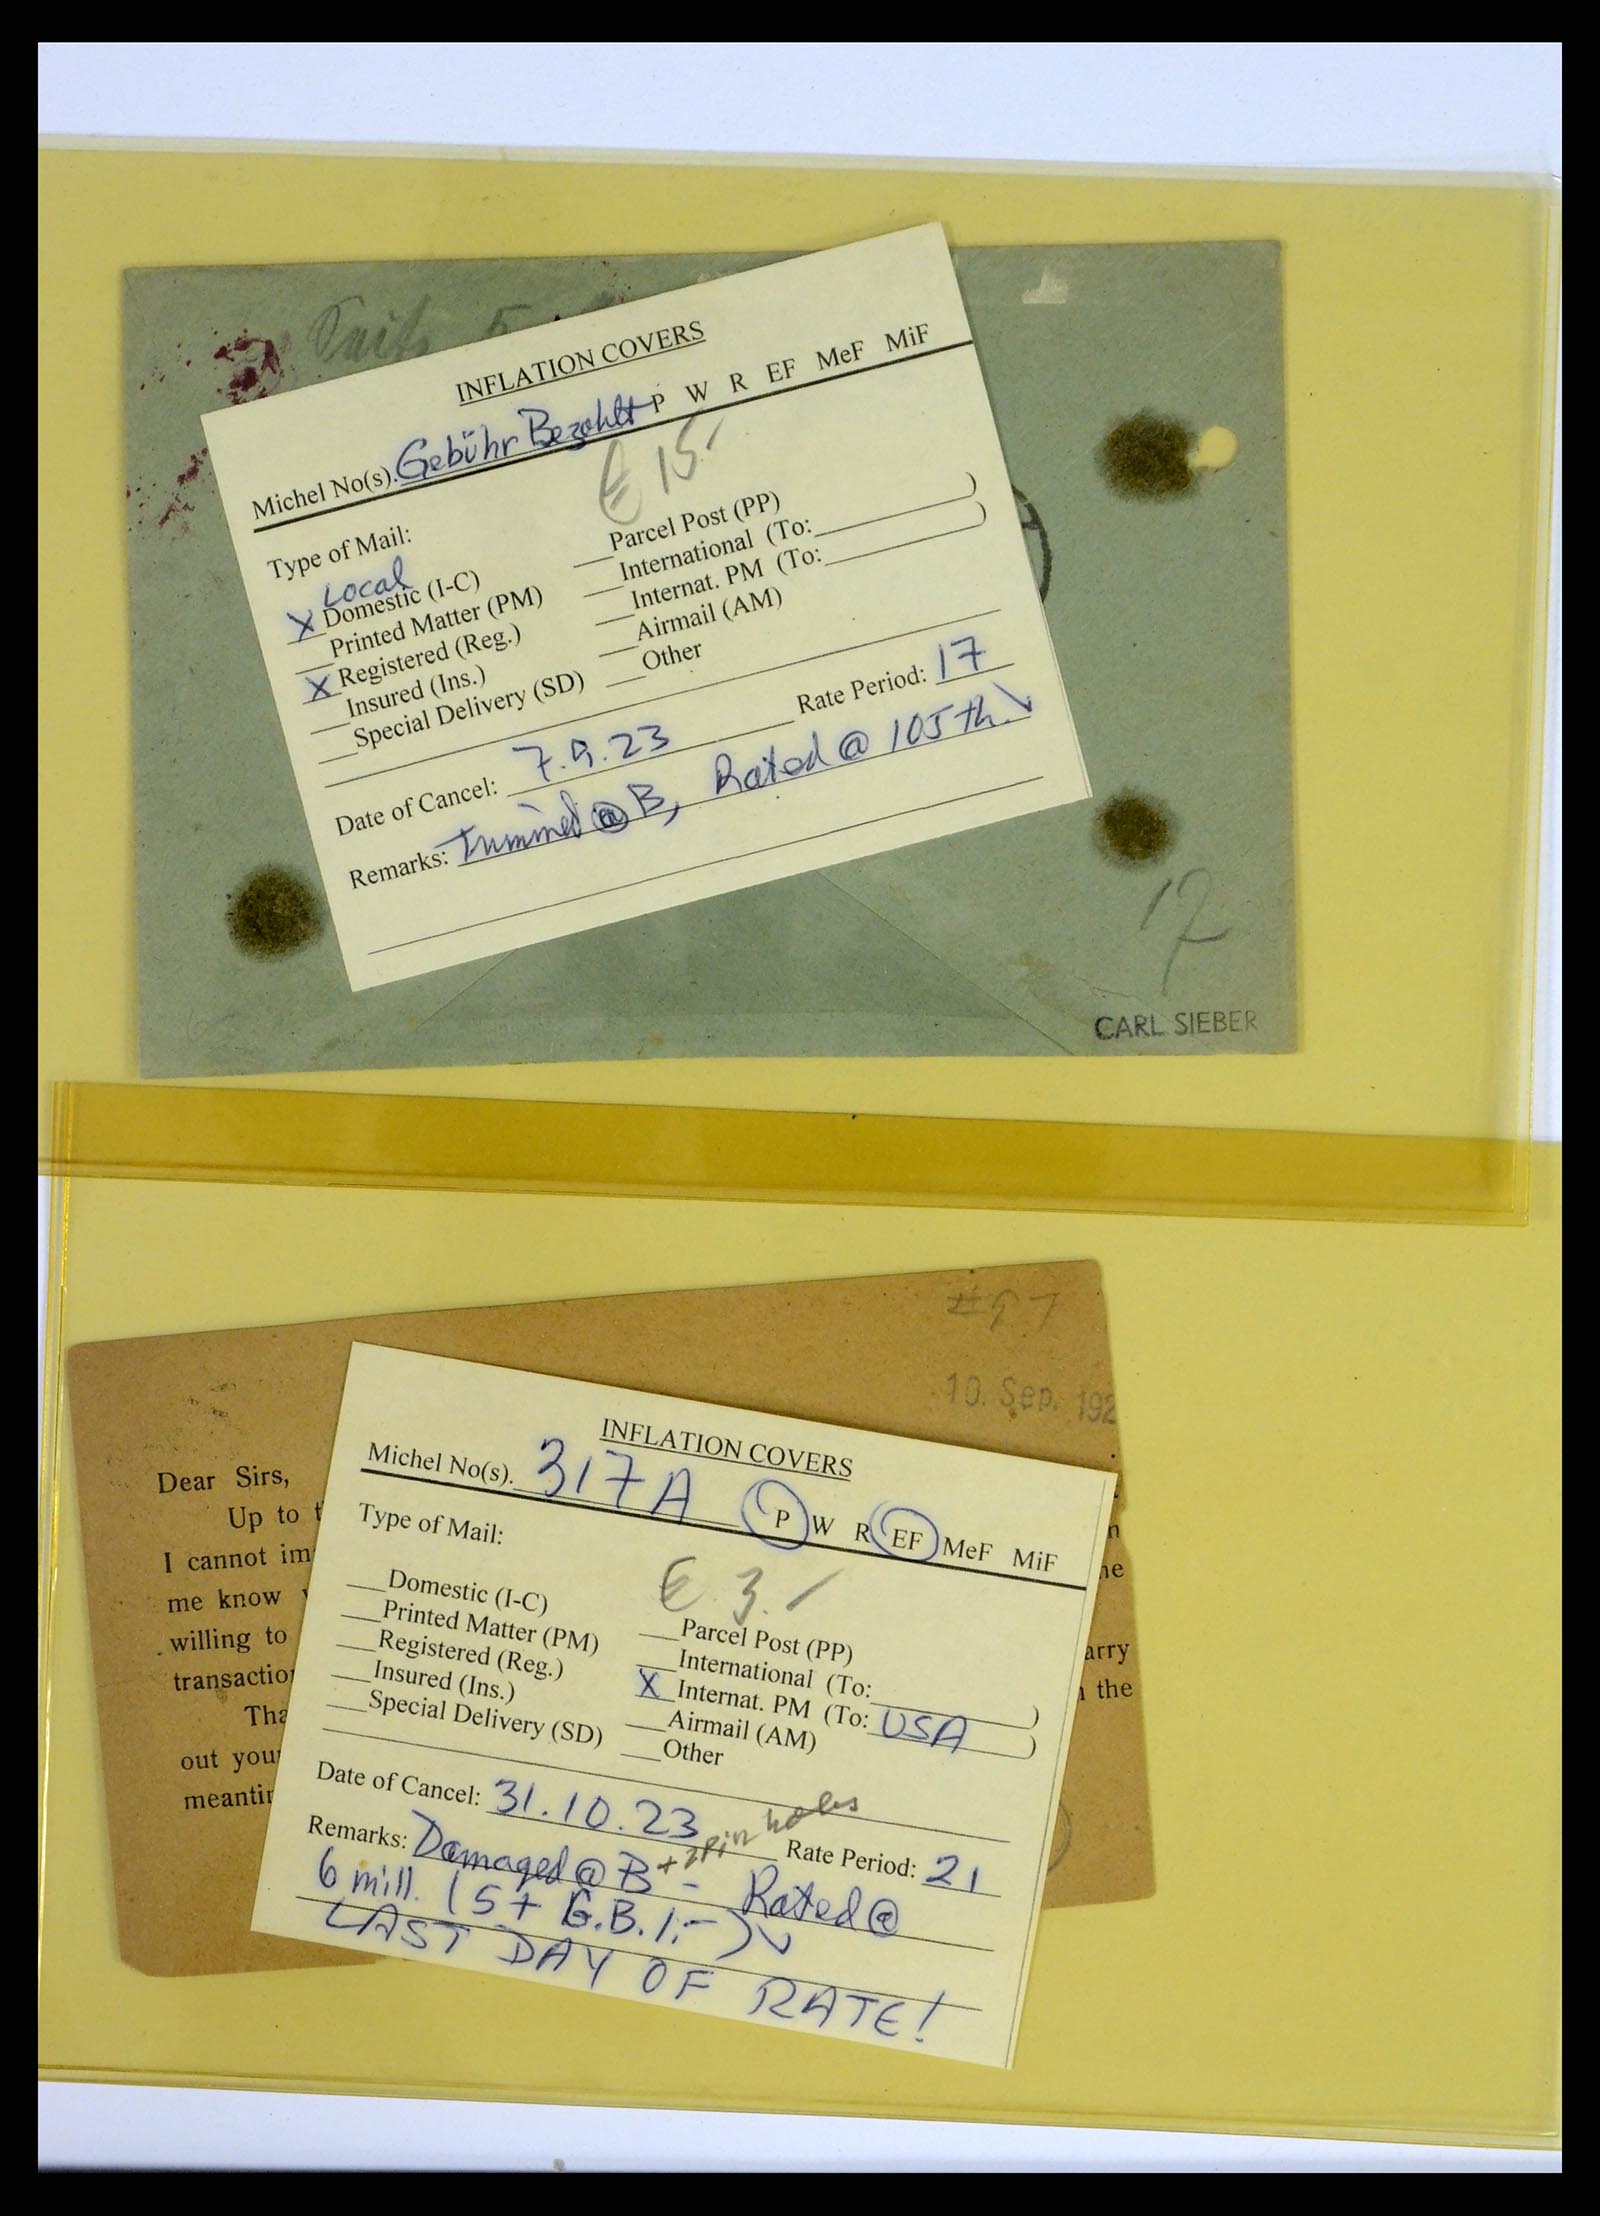 INFLATION COVERS
Michel No(s). Gebühr Bezahlt P W R EF MeF MiF
€ 15.-
Type of Mail:
Local
X Domestic (I-C)
__Printed Matter (PM)
X Registered (Reg.)
__Insured (Ins.)
__Special Delivery (SD)
__Parcel Post (PP)
__International (To:__________)
__Internat. PM (To:__________)
__Airmail (AM)
__Other
Date of Cancel: 7.9.23 Rate Period: 17
Remarks: Trimmed @ B, Rated @ 105 th.
17
CARL SIEBER
#97
10. Sep. 192
Dear Sirs,
Up to t
I cannot im
me know
willing to
transaction
Tha
out your
meantin
n
he
arry
the
INFLATION COVERS
Michel No(s). 317A P W R EF MeF MiF
€ 3.-
Type of Mail:
__Domestic (I-C)
__Printed Matter (PM)
__Registered (Reg.)
__Insured (Ins.)
__Special Delivery (SD)
__Parcel Post (PP)
__International (To:__________)
X Internat. PM (To: USA)
__Airmail (AM)
__Other
Date of Cancel: 31.10.23 Rate Period: 21
Remarks: Damaged @ B + 2 pin holes - Rated @
6 mill. (5 + G.B. 1,-)
LAST DAY OF RATE!